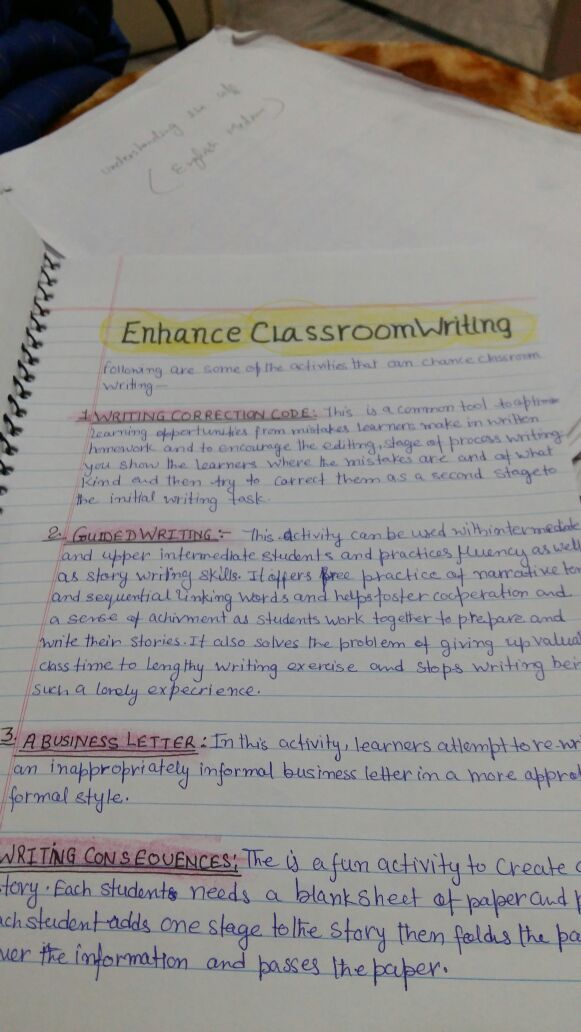 understanding the self
(English Medium)
Enhance Classroom Writing
following are some of the activities that can chance classroom
writing—
1. WRITING CORRECTION CODE: This is a common tool to
learning opportunities from mistakes learners make in written
homework and to encourage the editing, stage of process writing.
you show the learners where the mistakes are and of what
Kind and then try to correct them as a second stage to
the initial writing task.
2. GUIDED WRITING:- This activity can be used with intermediate
and upper intermediate students and practices fluency as well
as story writing skills. It offers free practice of narrative ten
and sequential linking words and helps foster cooperation and
a sense of achivment as students work together to prepare and
write their stories. It also solves the problem of giving up valua
class time to lengthy writing exercise and stops writing bein
such a lonely expecrience.
3. A BUSINESS LETTER: In this activity, learners attempt to re-wri
an inappropriately informal business letter in a more approp
formal style.
WRITING CONSEQUENCES: The is a fun activity to create a
tory. Each students needs a blank sheet of paper and p
ach student adds one stage to the story them foldes the pa
ver the information and passes the paper.